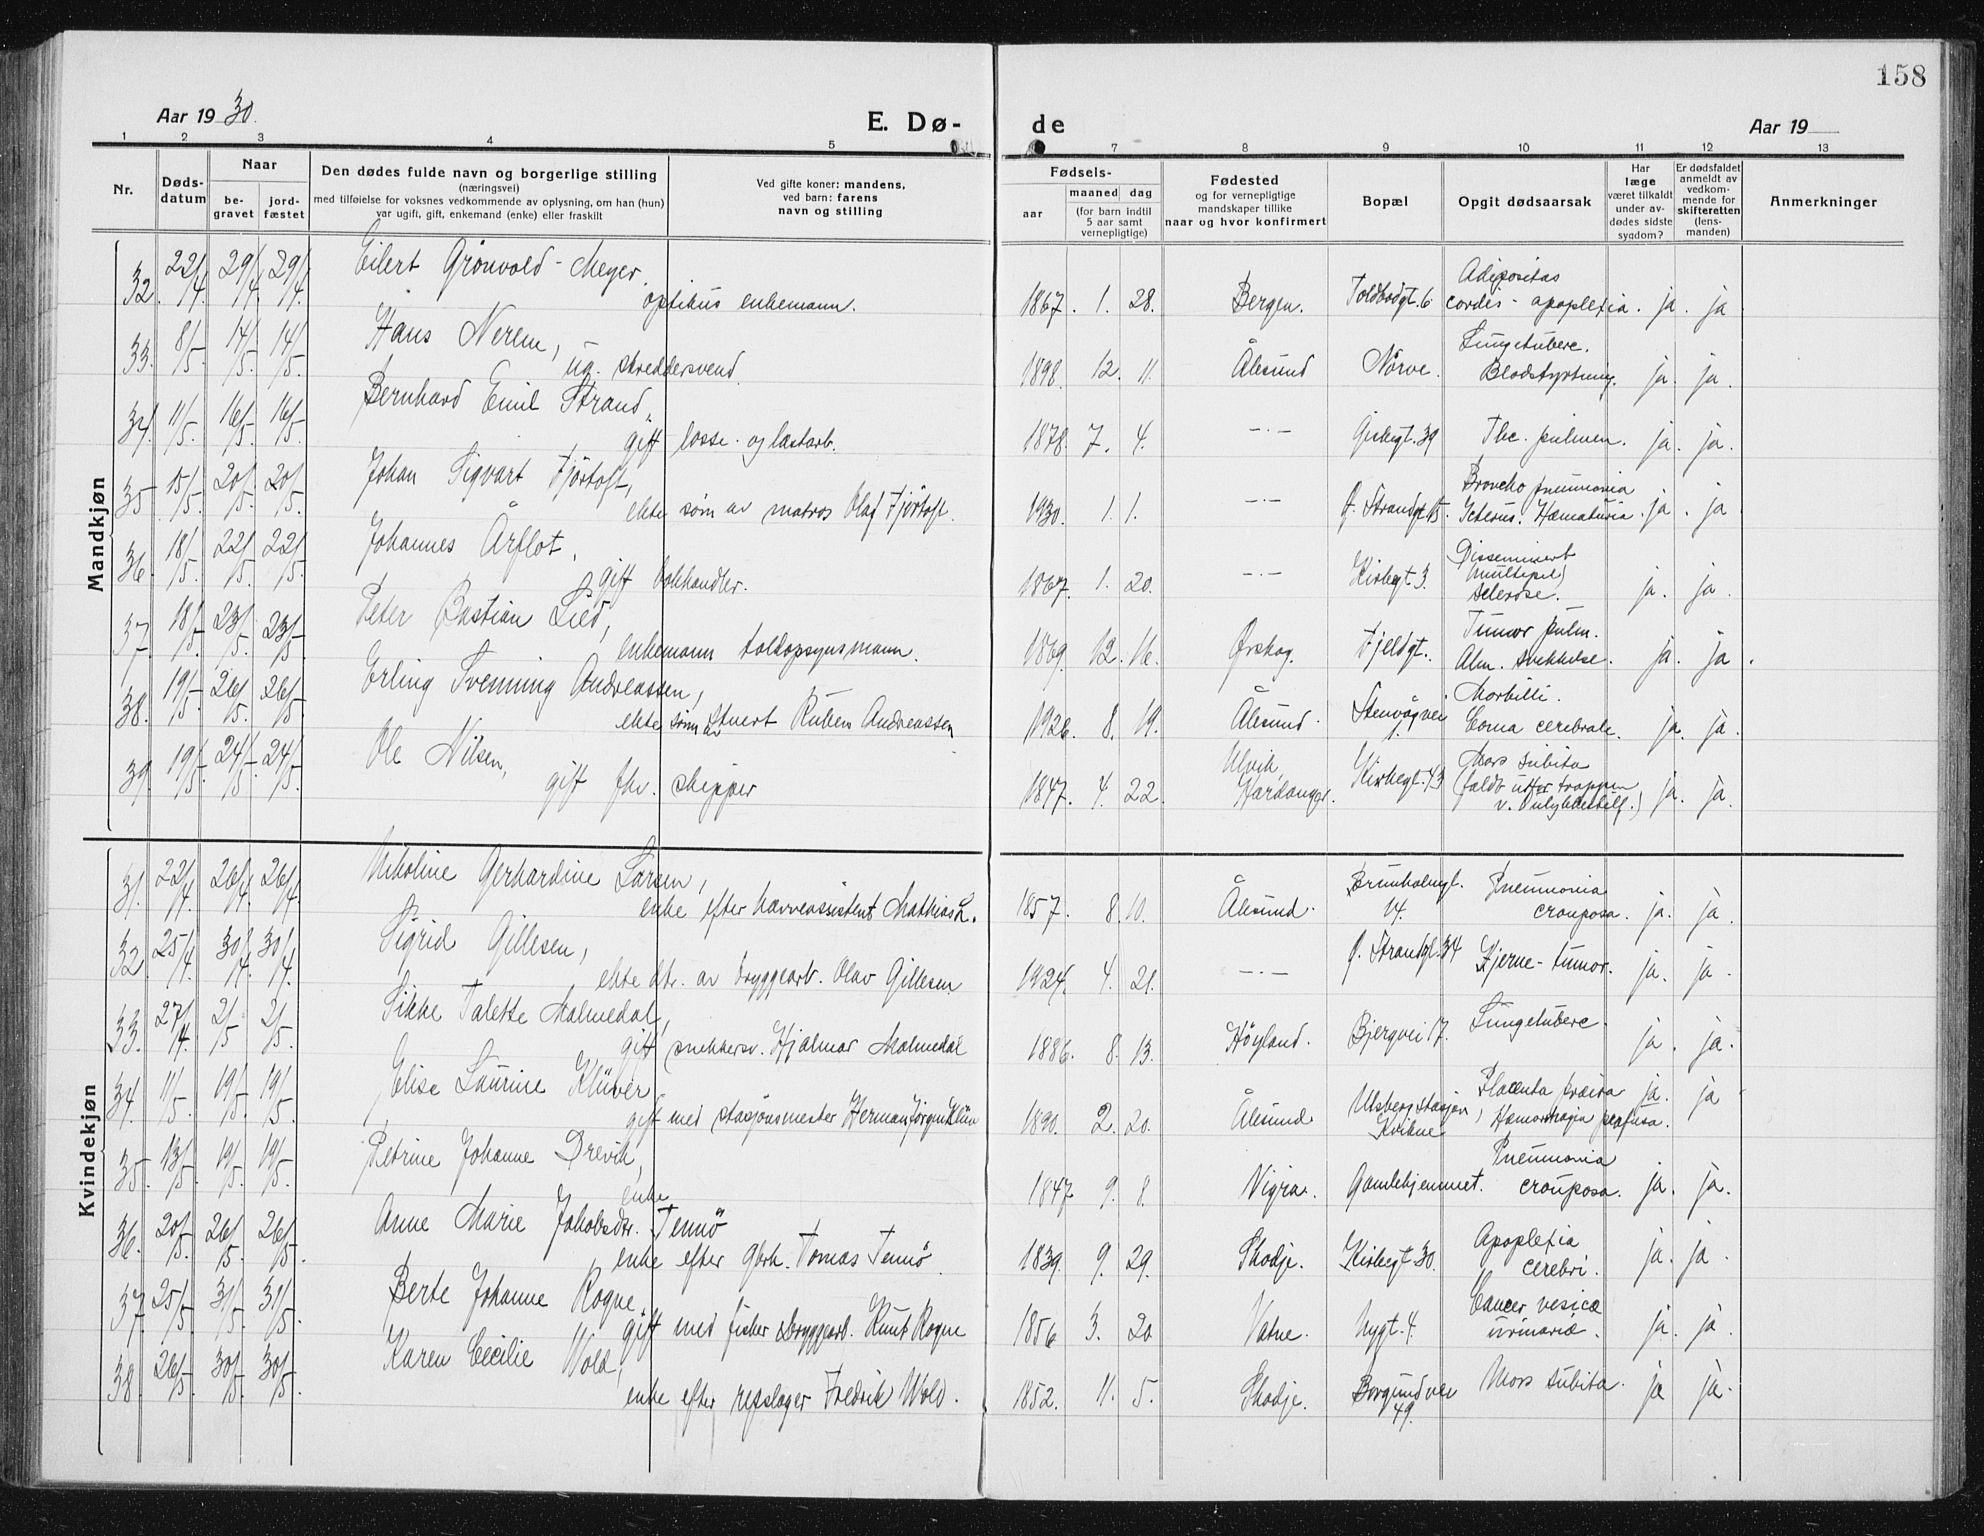 158
Aar 1930.
E. Dø-
de
Aar 19
1 2 3 4 5 7 8 9 10 11 12 13
Nr.
Døds-
datum
Naar
be-
gravet
jord-
fæstet
Den dødes fulde navn og borgerlige stilling
(næringsvei)
med tilføielse for voksnes vedkommende av oplysning, om han (hun)
var ugift, gift, enkemand (enke) eller fraskilt
Ved gifte koner: mandens,
ved barn: farens
navn og stilling
Fødsels-
aar
maaned dag
(for barn indtil
5 aar samt
vernepligtige)
Fødested
og for vernepligtige
mandskaper tillike
naar og hvor konfirmert
Bopæl
Opgit dødsaarsak
Har
læge
været tilkaldt
under av-
dødes sidste
sygdom?
Er dødsfaldet
anmeldt av
vedkom-
mende for
skifteretten
(lens-
manden)
Anmerkninger
Mandkjøn
32. 22/4. 29/4. 29/4. Eilert Grönvold-Meyer,
optikus enkemann. 1867. 1. 28. Bergen. Toldbodgt. 6 Adipositas
cordis - apoplexia. ja. ja
33. 8/5. 14/5. 14/5. Hans Nerem,
ug. skreddersvend 1898. 12. 11. Ålesund Nørve. Lungetuberc.
Blodstyrtning. ja. ja.
34. 11/5. 16/5. 16/5. Bernhard Emil Strand,
gift losse- og lastarb. 1878. 7. 4. —·— Gishegt. 39 Tbc. pulmon. ja. ja.
35. 15/5. 20/5. 20/5. Johan Sigvart Fjörtoft,
ekte sönn av matros Olaf Fjörtoft. 1930. 1. 1. —·— Ø. Strandgt. 15. Broncho pneumonia
Icterus. Hæmaturia. ja. ja
36. 18/5. 22/5. 22/5. Johannes Årflot,
gift bokhandler. 1867. 1. 20. —·— Kirkegt. 3. Disseminert
(multipel)
sclerose. ja. ja.
37. 18/5. 23/5. 23/5. Peter Bastian Lied,
enkemann toldopsynsmann. 1869. 12. 16. Ørskog. Fjeldgt.. Tumor pulm.
Alm. svekkelse. ja. ja.
38. 19/5. 26/5. 26/5. Erling Svenning Andreassen,
ekte sönn av Stuert Ruben Andreassen 1928. 8. 19. Ålesund. Stenvågvei Morbilli.
Coma cerebrale. ja. ja.
39. 19/5. 24/5. 24/5. Ole Nilsen,
gift fhv. skipper 1847. 4. 22. Ulvik,
Hardanger. Kirkegt. 43 Mors subita
(faldt utfor trappen
v. Ulykkestilf.) ja. ja.
Kvindekjøn
31. 22/4. 26/4. 26/4. Nikoline Gerhardine Larsen,
enke efter havneassistent Mathias L. 1857. 8. 10. Ålesund. Brunholmgt.
14. Pneumonia
crouposa. ja. ja.
32. 25/4. 30/4. 30/4. Sigrid Gillesen,
ekte dtr. av bryggearb. Olav Gillesen 1924. 4. 21. —·— Ø. Strandgt. 34 Hjerne-tumor. ja. ja.
33. 27/4. 2/5. 2/5. Sikke Talette Malmedal,
gift snekkersv. Hjalmar Malmedal 1886. 8. 13. Höyland. Bjergvei 17. Lungetuberc. ja. ja.
34. 11/5. 19/5. 19/5. Elise Laurine Klüver
gift med stasjonsmester Herman Jörgen Klüver 1890. 2. 20. Ålesund Ulsberg stasjon,
Kvikne Placenta prævia
Hæmorrhagia profusa. ja. ja
35. 13/5. 19/5. 19/5. Petrine Johanne Drevik,
enke 1847 9. 8. Vigra. Gamlehjemmet. Pneumonia
crouposa. ja. ja.
36. 20/5. 26/5. 26/5. Anne Marie Jakobsdtr. Tennö
enke efter gbrk. Tomas Tennö. 1839. 9. 29. Skodje. Kirkegt. 30. Apoplexia
cerebri. ja. ja.
37. 25/5. 31/5. 31/5. Berte Johanne Rogne,
gift med fisker bryggearb. Knut Rogne 1856 3. 20 Vatne. Nygt. 4. Cancer vesicæ
urinariæ. ja. ja.
38. 26/5. 30/5. 30/5. Karen Cecilie Wold,
enke efter repslager Fredrik Wold. 1852. 11. 5. Skodje. Borgundvei
49. Mors subita. ja ja.